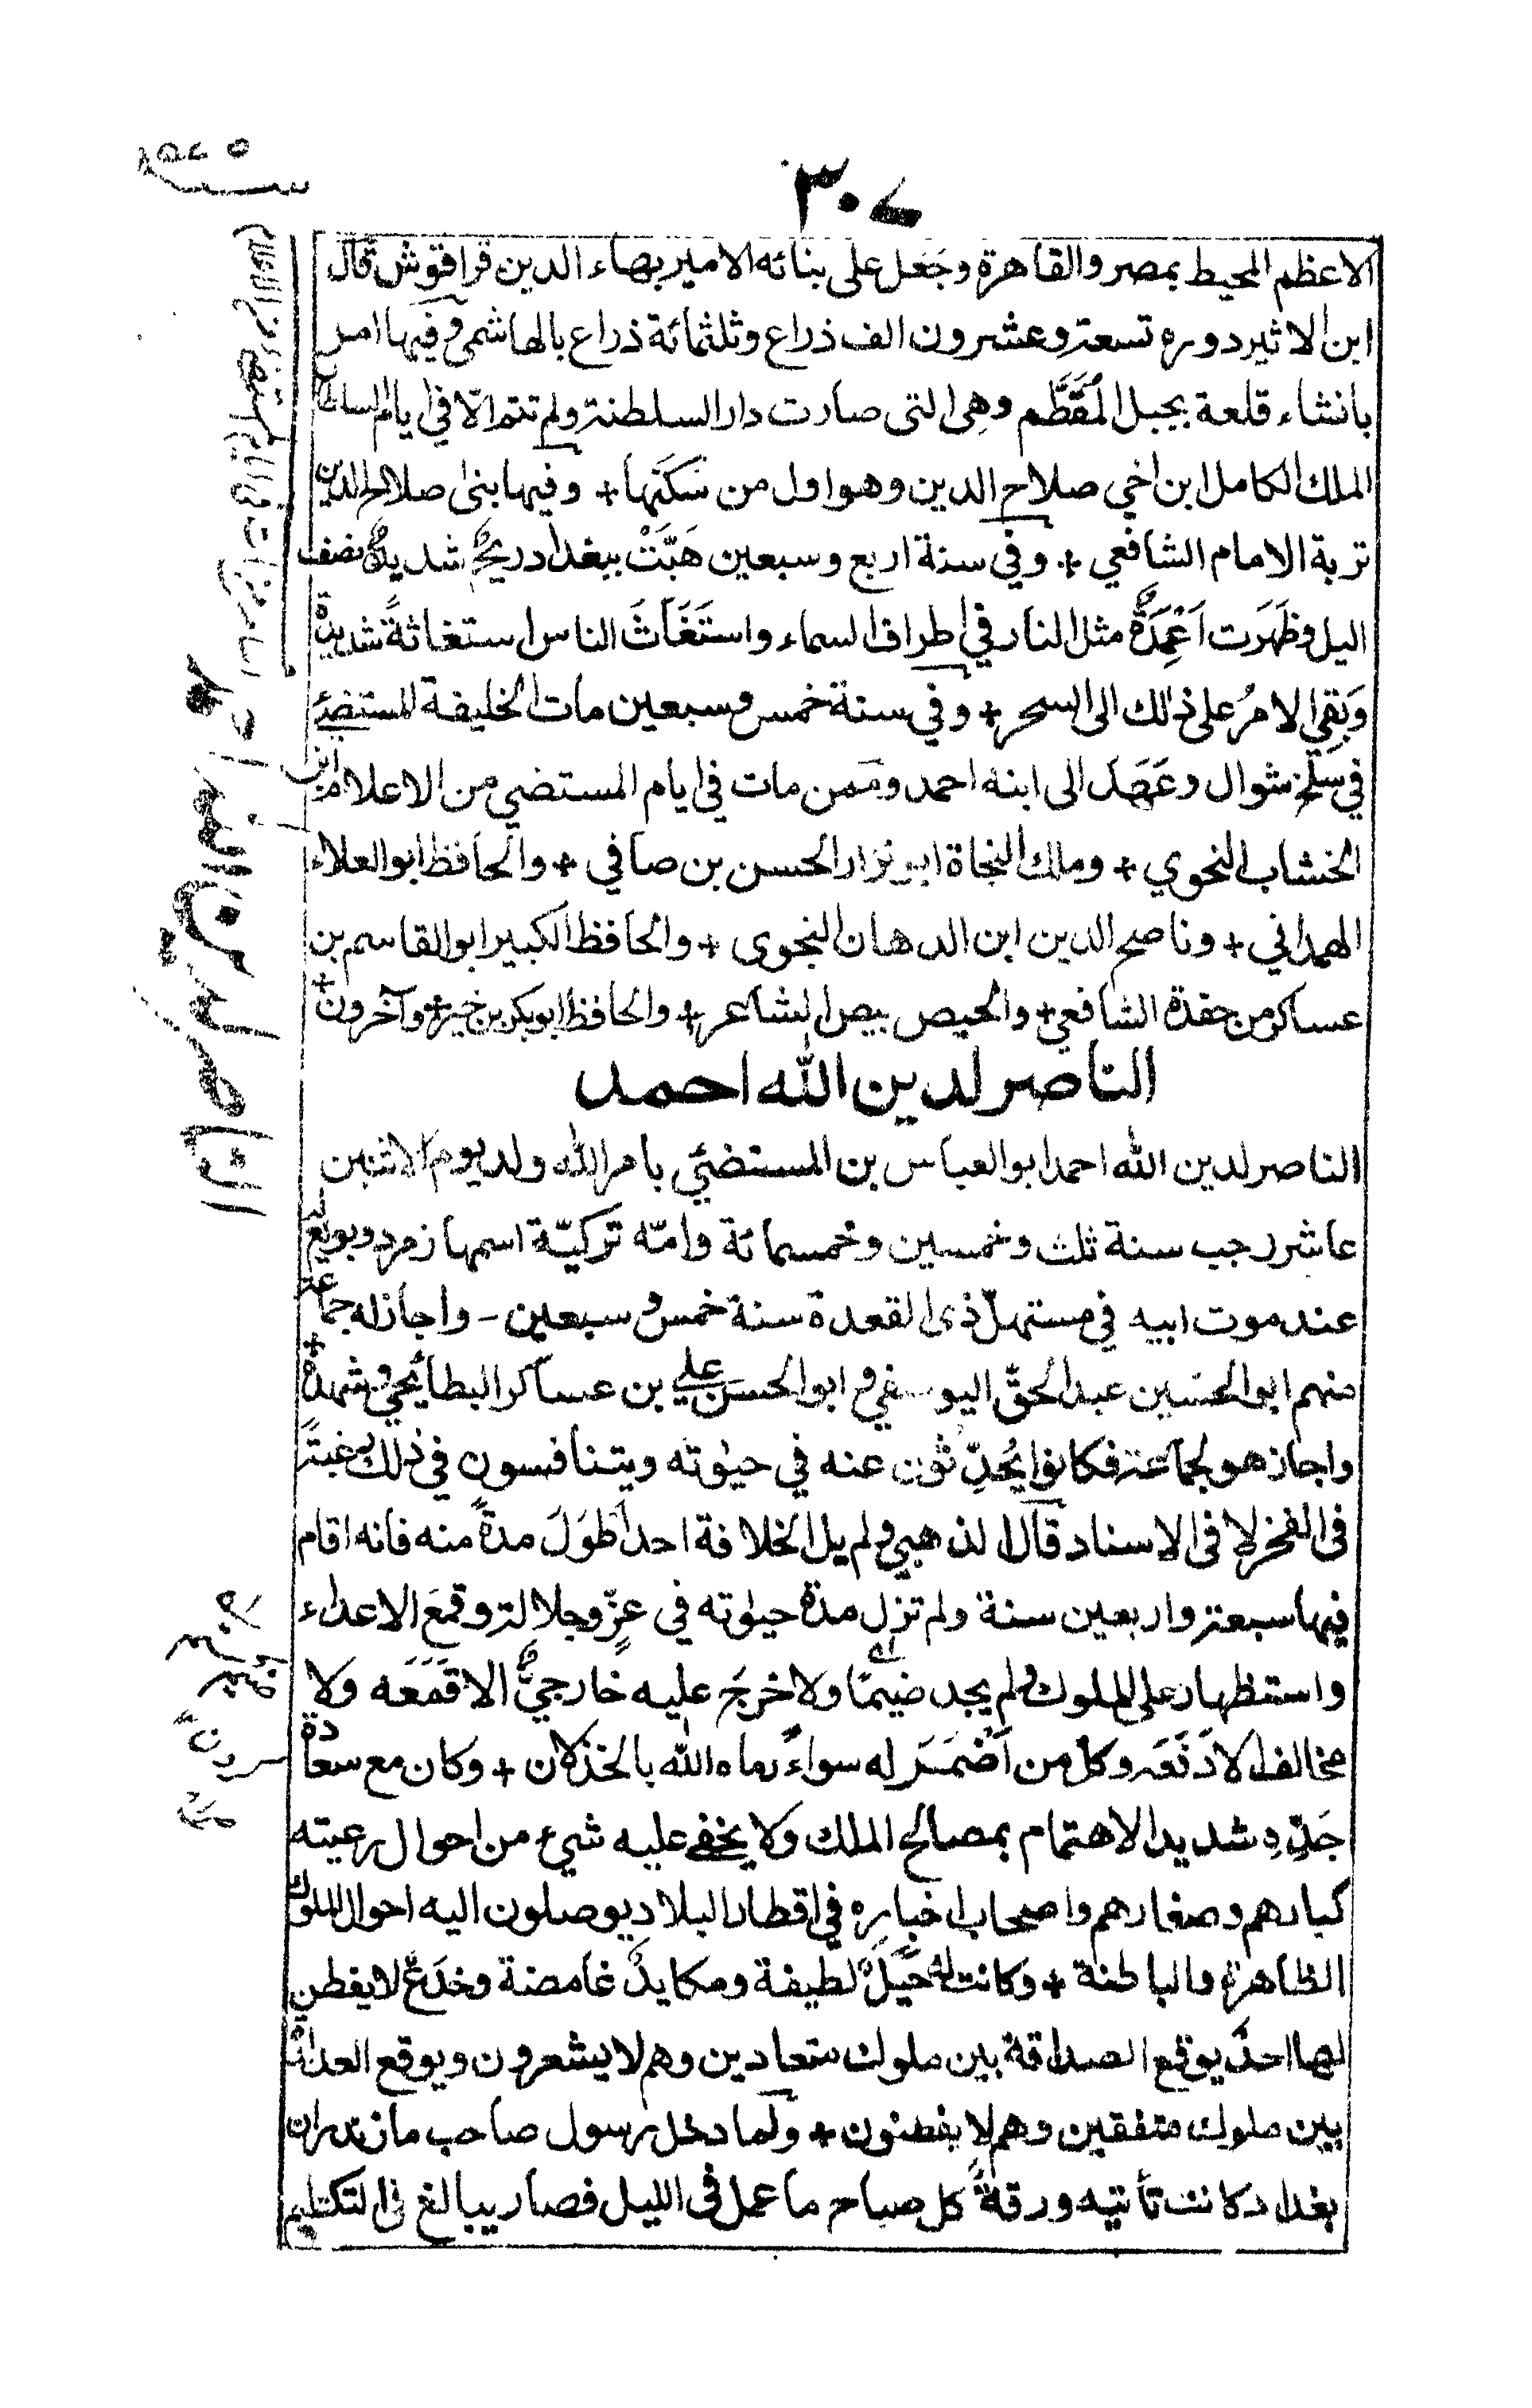 ٣٠٧
الاعظم المحيط بمصر والقاهرة وجَعَل على بنائه الامير بهاء الدين قراقوش قال
ابن الاثير دوره تسعة وعشرون الف ذراع وثلثمائة ذراع بالهاشمى وفيها امر
بانشاء قلعة بجبل المُقَطَّم وهى التى صارت دار السلطنة ولم تتم الّا في ايام السلطان
الملك الكامل ابن اخي صلاح الدين وهو اول من سَكَنَها + وفيها بنى صلاح الدين
تربة الامام الشافعي + وفي سنة اربع وسبعين هَبَّتْ ببغداد ريحٌ شديدةٌ نصف
اليل وظَهَرَت اَعْمِدَةٌ مثل النار في اطراف السماء واستَغَاثَ الناس استغاثةً شديدةً
وَبَقِي الامرُ على ذلك الى السحر + وفي سنة خمس وسبعين مات الخليفة المستضئ
في سَلْخ شوال وعَهِدَ الى ابنه احمد وممن مات في ايام المستضي من الاعلام ابن
الخشاب النحوي + وملك النحاة ابو نزار الحسن بن صافي + والحافظ ابو العلاء
الهمداني + وناصح الدين ابن الدهان النحوى + والحافظ الكبير ابو القاسم بن
عساكر من حفدة الشافعي + والحيص بيص الشاعر + والحافظ ابوبكر بن خير + وآخرون +
الناصر لدين الله احمد
الناصر لدين الله احمد ابو العباس بن المستضئي بامر الله ولد يوم الاثنين
عاشر رجب سنة ثلث وخمسين وخمسمائة وامّه تركيّة اسمها زمرد وبويع له
عند موت ابيه في مستهلّ ذى القعدة سنة خمس وسبعين - واجاز له جماعة
منهم ابو الحسين عبد الحقّ اليوسفي وابو الحسن علي بن عساكر البطائحي وشهدة +
واجاز هو لجماعة فكانوا يُحدِّثون عنه في حيوته ويتنافسون في ذلك رغبةً
فى الفخر لا فى الاسناد قال الذهبي ولم يل الخلافة احد اَطوَلَ مدةً منه فانه اقام
فيها سبعة واربعين سنة ولم تزل مدة حيوته في عِزّ وجلالة وقمعَ الاعداء
واستظهار على الملوك ولم يجد ضيمًا ولا خرج عليه خارجيٌّ الا قَمَعَه ولا
مخالف الا دَفَعَه وكل من اَضْمَرَ له سواءً رماه الله بالخذلان + وكان مع سعادة
جَدِّهِ شديد الاهتمام بمصالح الملك ولا يخفى عليه شيء من احوال رعيته
كبارهم وصغارهم واصحاب اخباره في اقطار البلاد يوصلون اليه احوال الملوك
الظاهرة والباطنة + وكانت له حِيَلٌ لطيفة ومكايدٌ غامضة وخدَعٌ لا يفطن
لها احدٌ يوقع الصداقة بين ملوك متعادين وهم لا يشعرون ويوقع العداوة
بين ملوك متفقين وهم لا يفطنون + ولما دخل رسول صاحب مازندران
بغداد كانت تأتيه ورقةٌ كل صباح ما عمل فى الليل فصار يبالغ فى التكتيم
الناصر لدين الله احمد